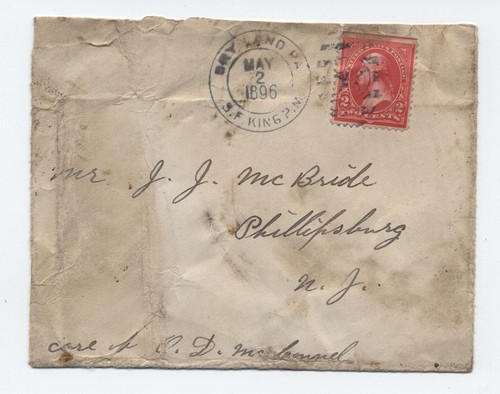 MAY
2
1896
S.F. KING P.M.
TWO CENTS
Mr J. J. McBride
Phillipsburg
N. J.
care of O. D. McConnel